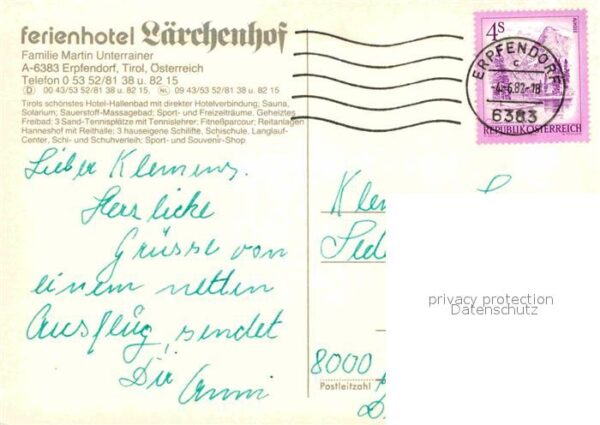 ferienhotel Lärchenhof
Familie Martin Unterrainer
A-6383 Erpfendorf, Tirol, Österreich
Telefon 0 53 52/81 38 u. 82 15
D 00 43/53 52/81 38 u. 82 15, NL 09 43/53 52/81 38 u. 82 15
Tirols schönstes Hotel-Hallenbad mit direkter Hotelverbindung; Sauna,
Solarium; Sauerstoff-Massagebad; Sport- und Freizeiträume. Geheiztes
Freibad; 3 Sand-Tennisplätze mit Tennislehrer; Fitneßparcour; Reitanlagen
Hanneshof mit Reithalle; 3 hauseigene Schilifte, Schischule, Langlauf-
Center, Schi- und Schuhverleih; Sport- und Souvenir-Shop
4S
ERPFENDORF
c
6383
REPUBLIK ÖSTERREICH
Lieber Klemens.
Herzlicke
Grüsse von
einem netten
Ausflug, sendet
Dir Anni
Klem
8000
Postleitzahl
privacy protection
Datenschutz